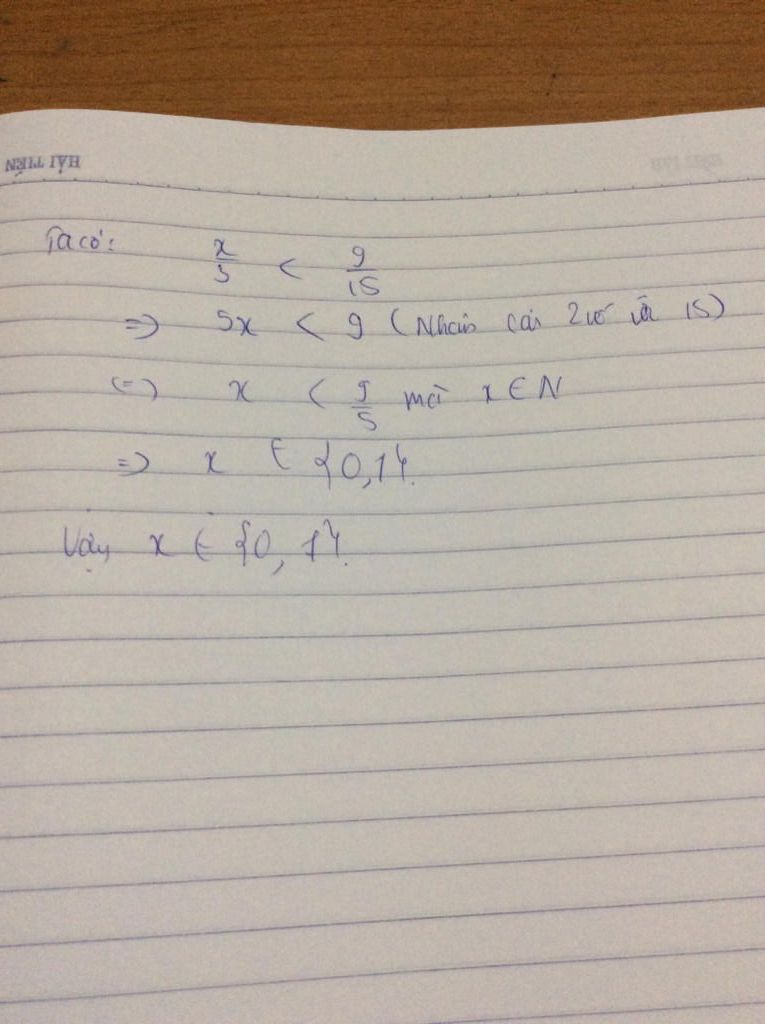 HẢI TIẾN
Ta có: x/3 < 9/15
=> 5x < 9 (Nhân cả 2 vế với 15)
(=) x < 9/5 mà x ∈ N
=> x ∈ {0,1}.
Vậy x ∈ {0, 1}.